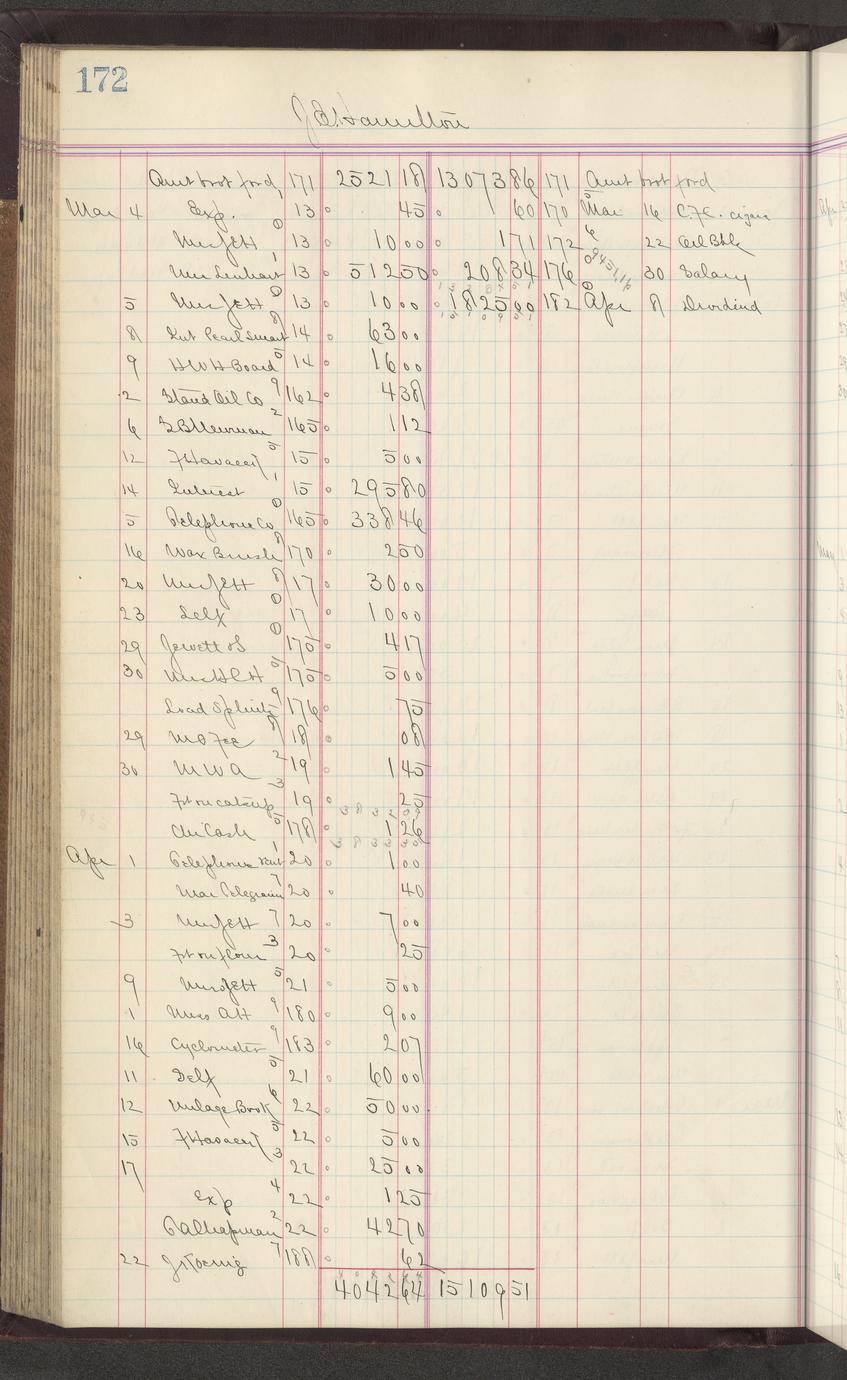 172
J.E. Hamilton
Amt brot ford, 171 2521 18 13073 86 171 Amt brot ford
Mar 4 Exp. 13 45 60 170 Mar 16 C.F.C. cigars
Mrs JEH 13 10 00 1 71 172 22 Oil Bbl
Mrs Lenhart 13 512 50 208 34 176 30 Salary
5 Mrs JEH 13 10 00 1825 00 182 Apr 8 Dividend
8 Int Pearl Smart 14 63 00
9 HWH Board 14 16 00
2 Stand Oil Co 162 4 38
6 Newman 165 1 12
12 15 5 00
14 Interest 15 295 80
5 Telephone Co 165 338 46
16 Wax Brush 170 2 50
20 Mrs JEH 17 30 00
23 Self 17 10 00
29 Jewett & S 175 4 17
30 Mrs HCH 175 5 00
Load Splints 176 75
29 M O Fee 18 08
30 M W A 19 1 45
Frt on catsup 19 25
Cash 178 1 26
Apr 1 Telephone Rent 20 1 00
Mar Telegrams 20 40
3 Mrs JEH 20 7 00
Frt on flour 20 25
9 Mrs JEH 21 5 00
1 Miss AH 180 9 00
16 Cyclometer 183 2 07
11 Self 21 60 00
12 Milage Book 22 50 00
15 22 5 00
17 22 25 00
Exp 22 1 25
Chapman 22 42 70
22 J Koenig 188 62
4042 64 15109 51